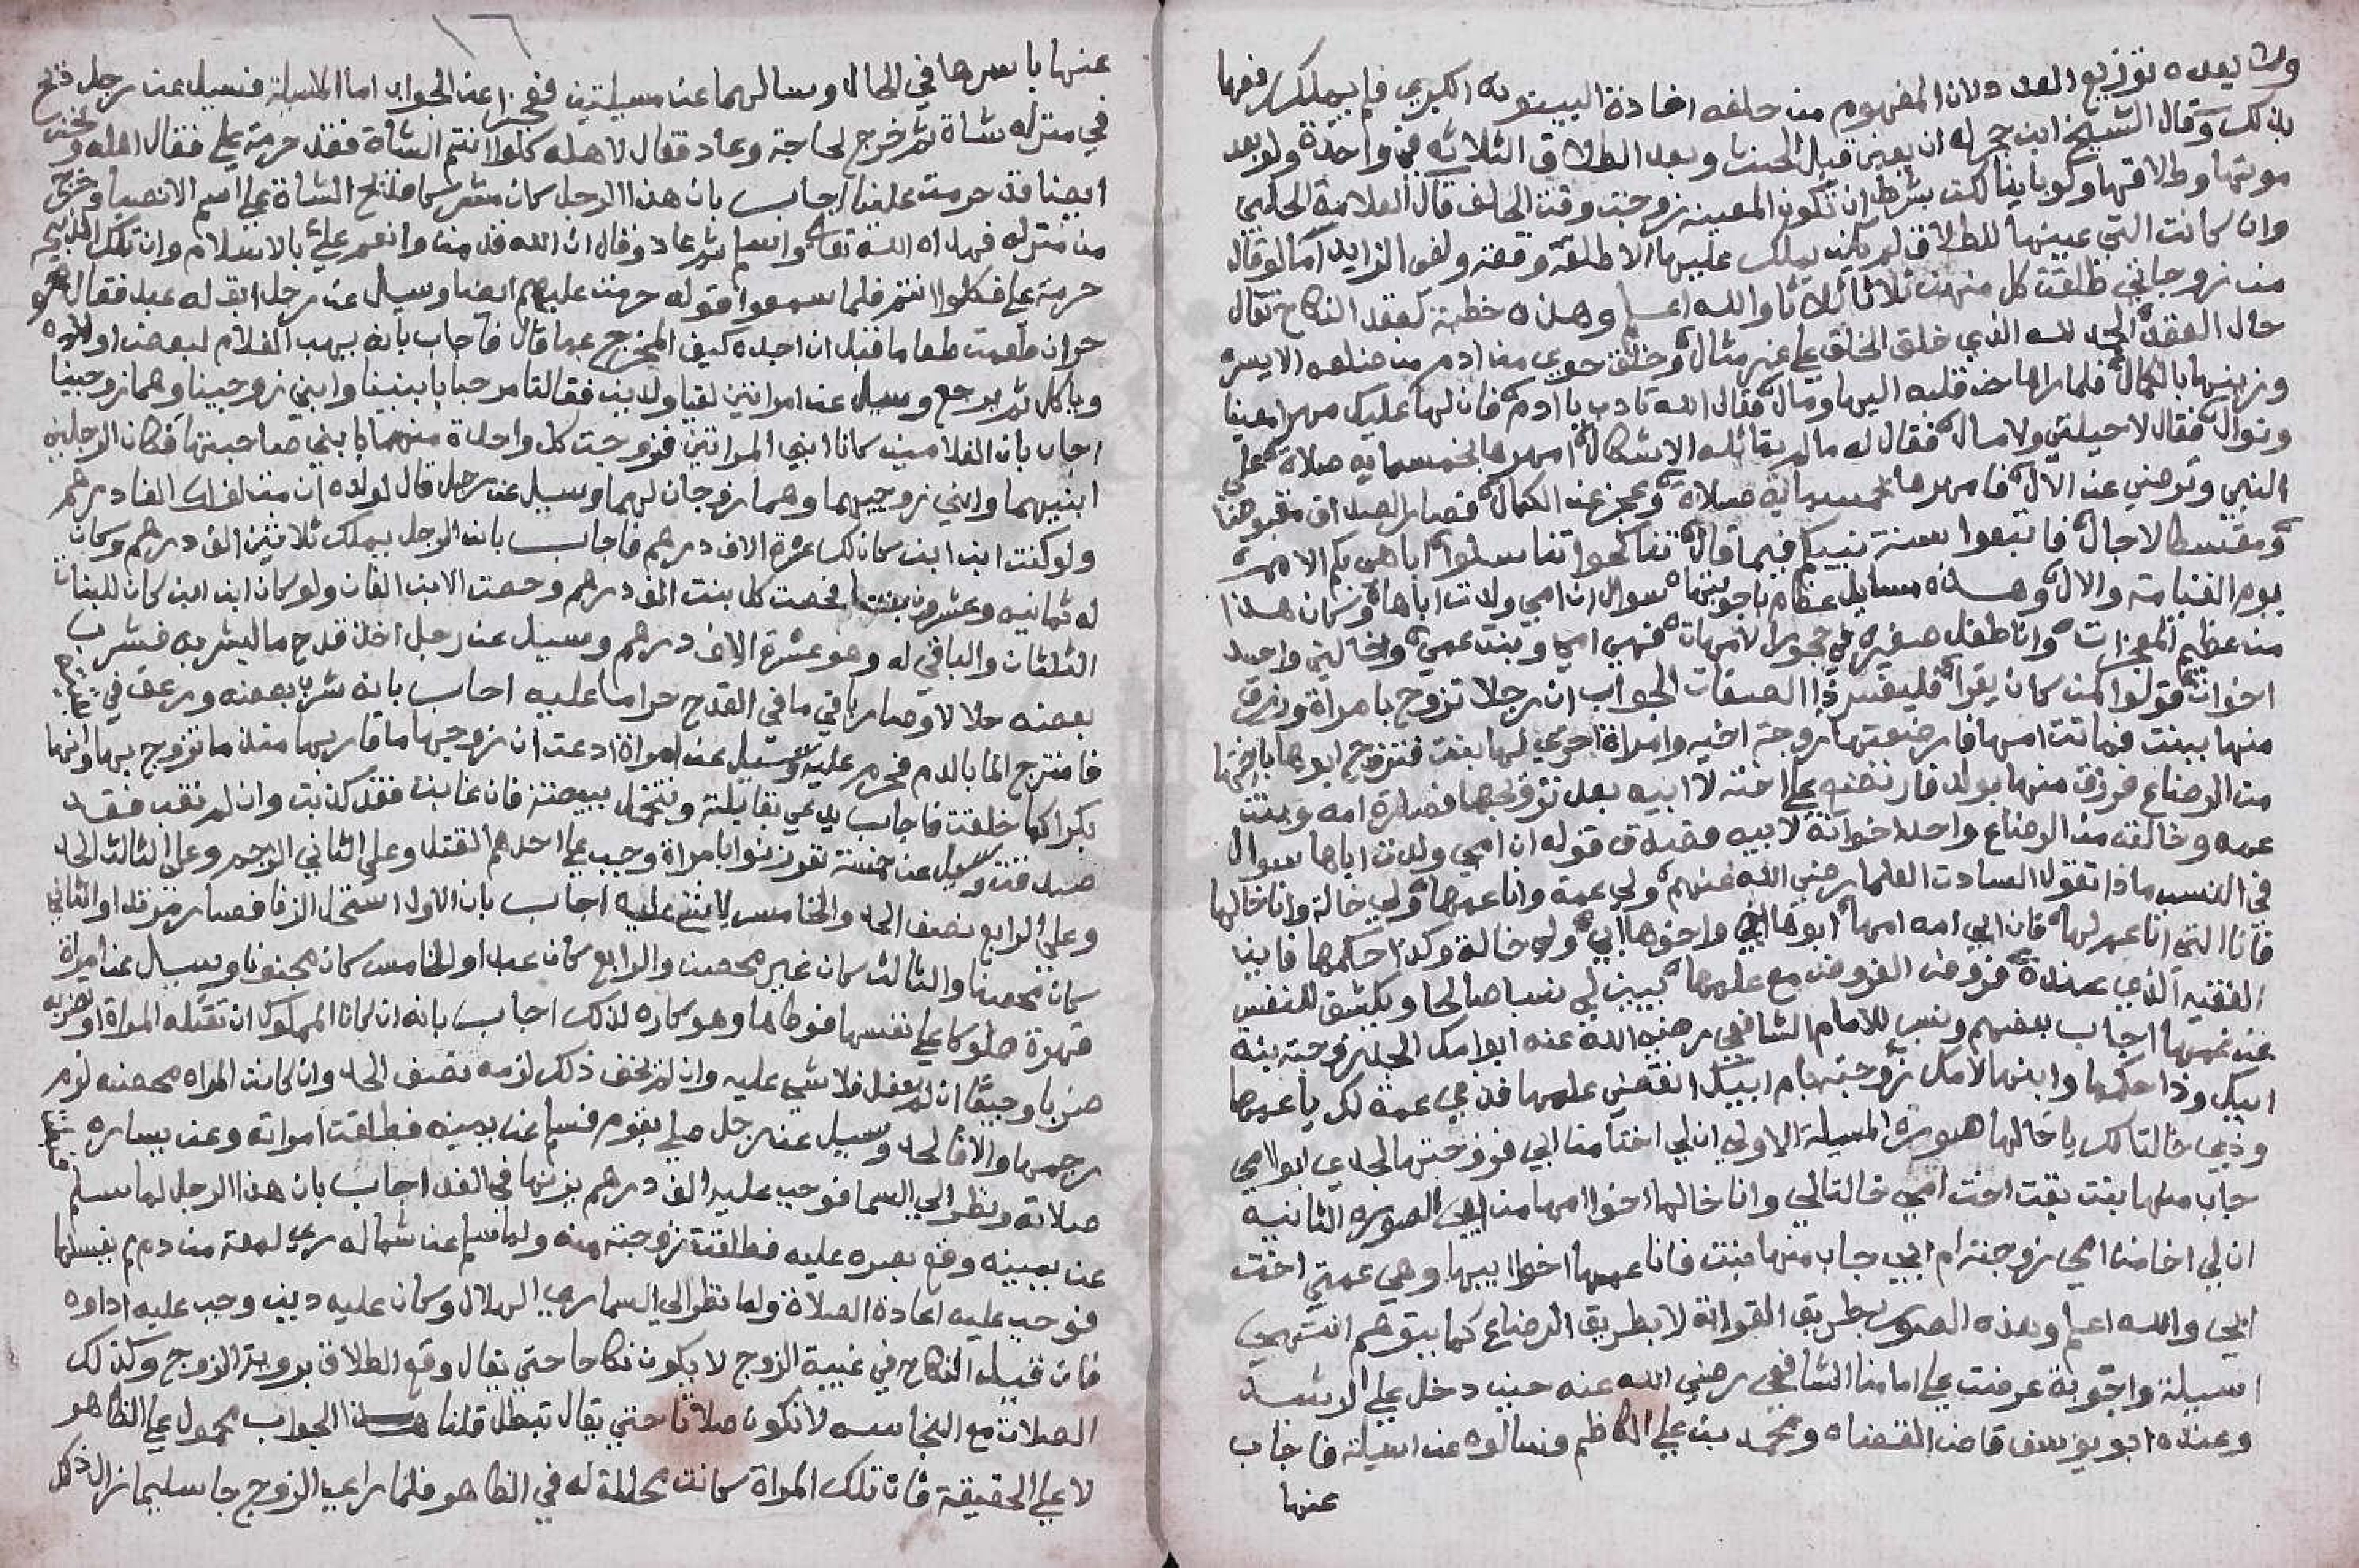 ولا يعده توزيع العدد لان المفهوم من حلفه افادة البينونه الكبري فلم يملك رفعها
بذلك وقال الشيخ ابن حجر له ان يعين قبل الحنث وبعد الطلاق الثلاثه في واحدة ولو بعد
موتها وطلاقها وكوباينا لكن بشرط ان تكون المعينه زوجت وقت الحلف قال العلامة الحلبي
وان كانت التي عينها للطلاق لم يكن يملك عليها الا طلقة وقعت ولغي الزايد اما لو قال
من زوجاتي طلقت كل منهن ثلاثا ثلاثا والله اعلم وهذه خطبة لعقد النكاح تقال
حال العقد الحمد لله الذي خلق الخلق علي غير مثال وخلق حوي من ادم من ضلعه الايسر
وزينها بالكمال فلما راها حن قلبه اليها ومال فقال الله تادب يا ادم فان لها عليك مهرا معينا
ونوال فقال لا حيلتي ولا مال فقال له مالم يقابله الاشكال امهرها بخمسمايه صلاة علي
النبي وترضي عن الال فامهرها خمسمايه صلاة وعجز عن الكمال فصار الصداق مقبوضا
ومقسطا لاجال فاتبعوا سنة نبيكم فيما قال تناكحوا تناسلوا اباهي بكم الامم
يوم القيامة والال وهذه مسايل عظام باجوبتها سوال ان امي ولدت اباها وكان هذا
من عظيم المعجزات وانا طفل صغير في حجور الامهات فهي امي وبنت عمي وخالتي واحد
اخواتي قولوا لمن كان يقرا فليفسر ذا الصفات الجواب ان رجلا تزوج بامراة ورزق
منها ببنت فماتت امها فارضعتها زوجة اخيه وامراة اخري لها بنت فتزوج ابوها باختها
من الرضاع فرزق منها بولد فارضعته علي اخته لابيه بعد تزوجها فصارة امه وبنت
عمه وخالته من الرضاع واحد اخواته لابيه فصدق قوله ان امي ولدت اباها سوال
في النسب ماذا تقول السادت العلما رضي الله عنهم ولي عمة وانا عمها ولي خالة وانا خالها
فانا التي انا عم لها فان ابي امه امها ابوها اخي واخوها ابي ولي خالة وكذا حكمها فاين
الفقيه الذي عنده فروض الفروض مع علمها يبين لي نسبا صالحا ويكشف للنفس
عن غمتها اجاب بعضهم ونسب للامام الشافعي رضي الله عنه ابو امك الجد زوجته بنة
ابيك وذا حكمها وابنها لامك زوجتها بام ابيك انقضي علمها فذي عمة لك يا عمها
وذي خالتا لك يا خالها صورة المسيلة الاولي ان لي اختا من ابي فزوجتها لجدي ابو امي
جاب منها بنت بقت اخت امي خالتا لي وانا خالها اخوا امها من ابي الصوره الثانيه
ان لي اخا من امي زوجته ام ابي جاب منها بنت فانا عمها اخوا ابيها وهي عمتي اخت
ابي والله اعلم وهذه الصور بطريق القرابة لا بطريق الرضاع كما يتوهم انتهي
اسيلة واجوبة عرضت علي امامنا الشافعي رضي الله عنه حين دخل علي الرشيد
وعنده ابو يوسف قاض القضاه ومحمد بن علي الكاظم فسالوه عن اسيلة فاجاب
عنها
عنها باسرها في الحال وسالهما عن مسيلتين فعجزا عن الجواب اما الاسيلة فسيل عن رجل ذبح
في منزله شاة ثم خرج لحاجة وعاد فقال لاهله كلوا انتم الشاة فقد حرمت علي فقال اهله ونحن
ايضا قد حرمت علينا اجاب بان هذا الرجل كان مشركا فذبح الشاة علي اسم الانصاب وخرج
من منزله فهداه الله تعالي واسلم ثم عاد وقال ان الله قد من وانعم علي بالاسلام وان تلك الذبيحة
حرمة علي فكلوا انتم فلما سمعوا قوله حرمت عليهم ايضا وسيل عن رجل ابق له عبد فقال هو
حر ان طعمت طعاما قبل ان اجده كيف المخرج عما قال فاجاب بانه يهب الغلام لبعض اولاده
وياكل ثم يرجع وسيل عن امراتين لقيا ولدين فقالتا مرحبا بابنينا وابني زوجينا وهما زوجينا
اجاب بان الغلامين كانا ابني المراتين فزوجت كل واحدة منهما بابني صاحبتها فكان الرجلين
ابنيهما وابني زوجيهما وهما زوجان لهما وسيل عن رجل قال لولده ان مت لفلان الفا درهم
ولو كنت ابن ابن كان لك عشرة الاف درهم فاجاب بان الرجل يملك ثلاثين الف درهم وكان
له ثمانيه وعشرون بنتا فخصت كل بنت الف درهم وخصت الابن الفان ولو كان ابن ابن كان للبنات
الثلثان والباقي له وهو عشرة الاف درهم وسيل عن رجل اخذ قدح ما ليشربه فشرب
بعضه حلالا وصار باقي ما في القدح حراما عليه اجاب بانه شرب بعضه ورعف في
فامتزج الما بالدم فحرم عليه وسيل عن امراة ادعت ان زوجها ما قاربها منذ ما تزوج بها وانها
بكرا كما خلقت فاجاب يدعي بقابلة وتتحمل ببيضة فان غابت فقد كذبت وان لم تغب فقد
صدقت وسيل عن خمسة نفر زنوا بامراة وجب علي احدهم القتل وعلي الثاني الرجم وعلي الثالث الحد
وعلي الرابع نصف الحد والخامس لا شي عليه اجاب بان الاول استحل الزنا فصار مرتدا والثاني
كان محصنا والثالث كان غير محصن والرابع كان عبدا والخامس كان مجنونا وسيل عن امراة
قهرة مملوكا علي نفسها فوطاها وهو كاره لذلك اجاب بانه ان كان المملوك ان تقتله المراة او تضربه
ضربا وجيعا ان لم يفعل فلا شي عليه وان لم يخف ذلك لزمه نصف الحد وان كانت المراه محصنه لزم
رجمها والا فالحد وسيل عن رجل صلي بقوم فسلم عن يمينه فطلقت امراته وعن يساره
صلاته ونظر الي السما فوجب عليه الف درهم يزنها في الغد اجاب بان هذا الرجل لما سلم
عن يمينه وقع بصره عليه فطلقت زوجته منه ولما سلم عن شماله ري لمعة من دم لم يغسلها
فوجب عليه اعادة الصلاة ولما نظر الي السما ري الهلال وكان عليه دين وجب عليه اداوه
فان قيل النكاح في غيبة الزوج لا يكون نكاحا حتي يقال وقع الطلاق بروية الزوج وكذلك
الصلات مع النجاسه لا تكون صلاتا حتي يقال تبطل قلنا هذا الجواب محمول علي الظاهر
لا علي الحقيقة فان تلك المراة كانت محللة له في الظاهر فلما راي الزوج جا سليما زال ذلك